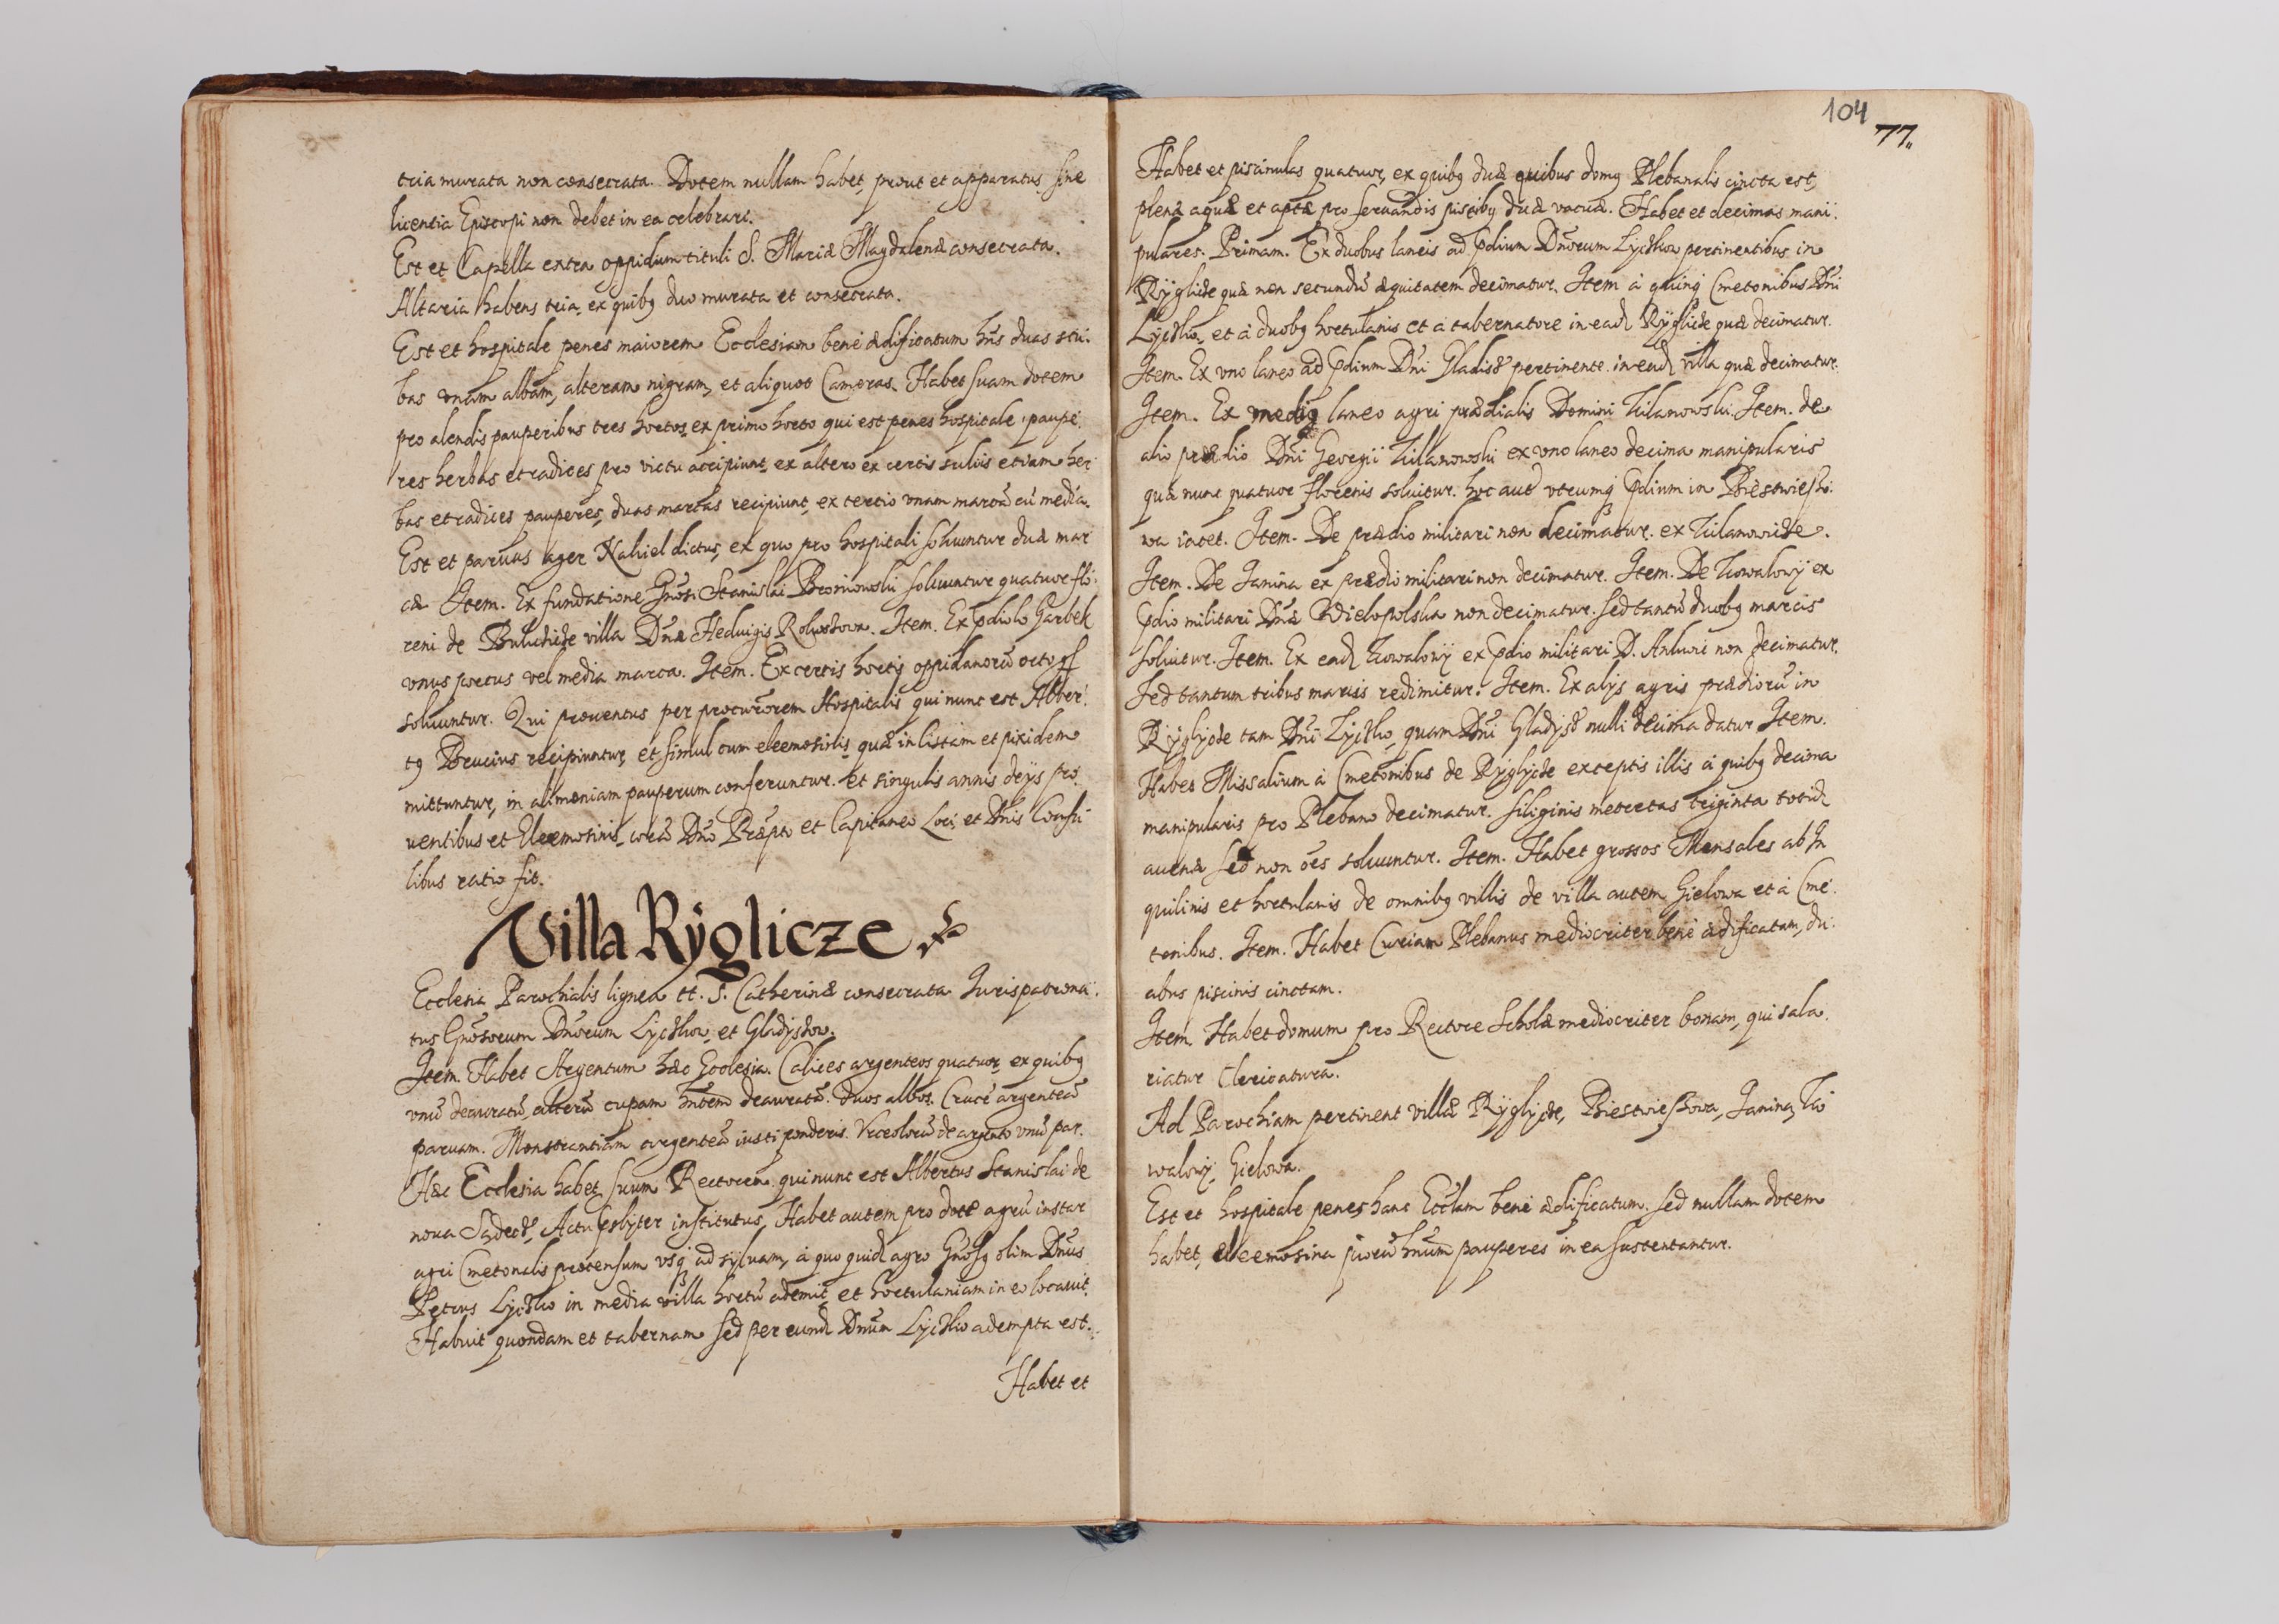 tria murata non consecrata. Dotem nullam habet, prout et apparatus, sine
licentia Episcopi non debet in ea celebrari.
Est et Capella extra oppidum tituli S. Mariæ Magdalenæ consecrata.
Altaria habens tria, ex quibꝫ duo murata et consecrata.
Est et hospitale penes maiorem Ecclesiam bene ædificatum hñs duas stu:
bas vnam albam, alteram nigram, et aliquot Cameras. Habet suam dotem
pro alendis pauperibus tres hortos, ex primo horto qui est penes hospitale, paupe:
res herbas et radices pro victu accipiunt, ex altero ex certis sulcis etiam her
bas et radices pauperes, duas marcas recipiunt, ex tertio vnam marcã cũ media.
Est et paruus ager Kahiel dictus, ex quo pro hospitali soluuntur duæ mar
cæ Item. Ex fundatione Gnõsi Stanislai Broniowski soluuntur quatuor flo:
reni de villa Dnæ Heduigis. Item. Ex pdiolo Garbek
vnus porcus vel media marca. Item. Ex certis hortis oppidanorũ octo gſ
soluuntur. Qui prouentus per procurõrem Hospitalis qui nunc est Alber:
tꝰ Brucius recipiuntur, et simul cum eleemosinis, quæ in listam et pixidem
mittuntur, in alimoniam pauperum conferuntur. et singulis annis deijs pro
uentibus et Eleemosinis, corã Dno Præpto et Capitaneo Loci, et Dnis Consu
libus ratio fit.
Villa Rÿglicze
Ecclesia Parochialis lignea tt. S. Catherinæ consecrata Iurispatrona:
tus Gnosorum Dnorum Lyczko, et Gladyszow.
Item. Habet Argentum hæc Ecclesia. Calices argenteos quatuor, ex quibꝫ
vnũ deauratũ, alterũ cupam hntem deauratã. duos albos. Crucẽ argenteã
paruam. Monstrantiam argenteã iusti ponderis. Vrceolorũ de argento vnũ par.
Hæc Ecclesia habet suum Rectorem qui nunc est Albertus Stanislai de
noua Sądecz, Actu psbyter institutus, Habet autem pro dote agrũ instar
agri Cmetonalis protensum vsqꝫ ad syluam, à quo quid agro Gnosꝰ olim Dnus
Petrus Lyczko in media villa hortũ ademit, et hortulaniam in eo locauit.
Habuit quondam et tabernam sed per eund Dnum Lyczko adempta est.
Habet et
104
77.
Habet et piscinulas quatuor, ex quibꝫ duæ quibus domꝰ Plebanalis cincta est,
plenæ aquæ et aptæ pro seruandis piscibꝫ duæ vacuæ. Habet et decimas mani:
pulares. Primam. Ex duobus laneis ad pdium Dnorum Lyczkow pertinentibus in
Rÿglicze quæ non secundũ æquitatem decimatur. Item à quinqꝫ Cmetonibus Dni
Lyczko, et à duobꝫ hortulanis et à tabernatore in ead Rÿglicze quæ decimatur.
Item. Ex vno laneo ad pdium Dni Gladisz pertinente in ead villa quæ decimatur.
Item. Ex laneo agri prædialis Domini Kilanowski. Item. de
alio prædio Dni Georgii Kilanowski ex vno laneo decima manipularis
quæ nunc quatuor florenis soluitur. hoc aut vtrumqꝫ pdium in Biestrzieszo:
wa iacet. Item. De prædio militari non decimatur. ex Kilanowicze.
Item. De Ianina ex prædio militari non decimatur. Item. De Kowalowy ex
pdio militari Dnæ Wielopolska non decimatur. sed tantũ duobꝫ marcis
soluitur. Item. Ex ead Kowalowy ex pdio militari D. non decimatur.
Sed tantum tribus marcis redimitur. Item. Ex alijs agris prædiorũ in
Rÿglycze tam Dni Lyczko, quam Dni Gladysz nulli decima datur Item.
Habet Missalium à Cmetonibus de Rÿglycze exceptis illis à quibꝫ decima
manipularis pro Plebano decimatur. siliginis metretas triginta totid
auenæ sed non oẽs soluuntur. Item. Habet grossos Mensales ab In
quilinis et hortulanis de omnibꝫ villis de villa autem Gielowa et à Cme:
tonibus. Item. Habet Curiam Plebanus mediocriter bene ædificatam, du:
abus piscinis cinctam.
Item. Habet domum pro Rectore Scholæ mediocriter bonam, qui sala:
riatur Clericatura.
Ad Parochiam pertinent villæ Rÿglycze, Biestrzieszowa, Ianina, Ko
walowy, Gielowa.
Est et hospitale penes hanc Ecclam bene ædificatum. sed nullam dotem
habet, eleemosina piorũ hnum pauperes in ea sustentantur.